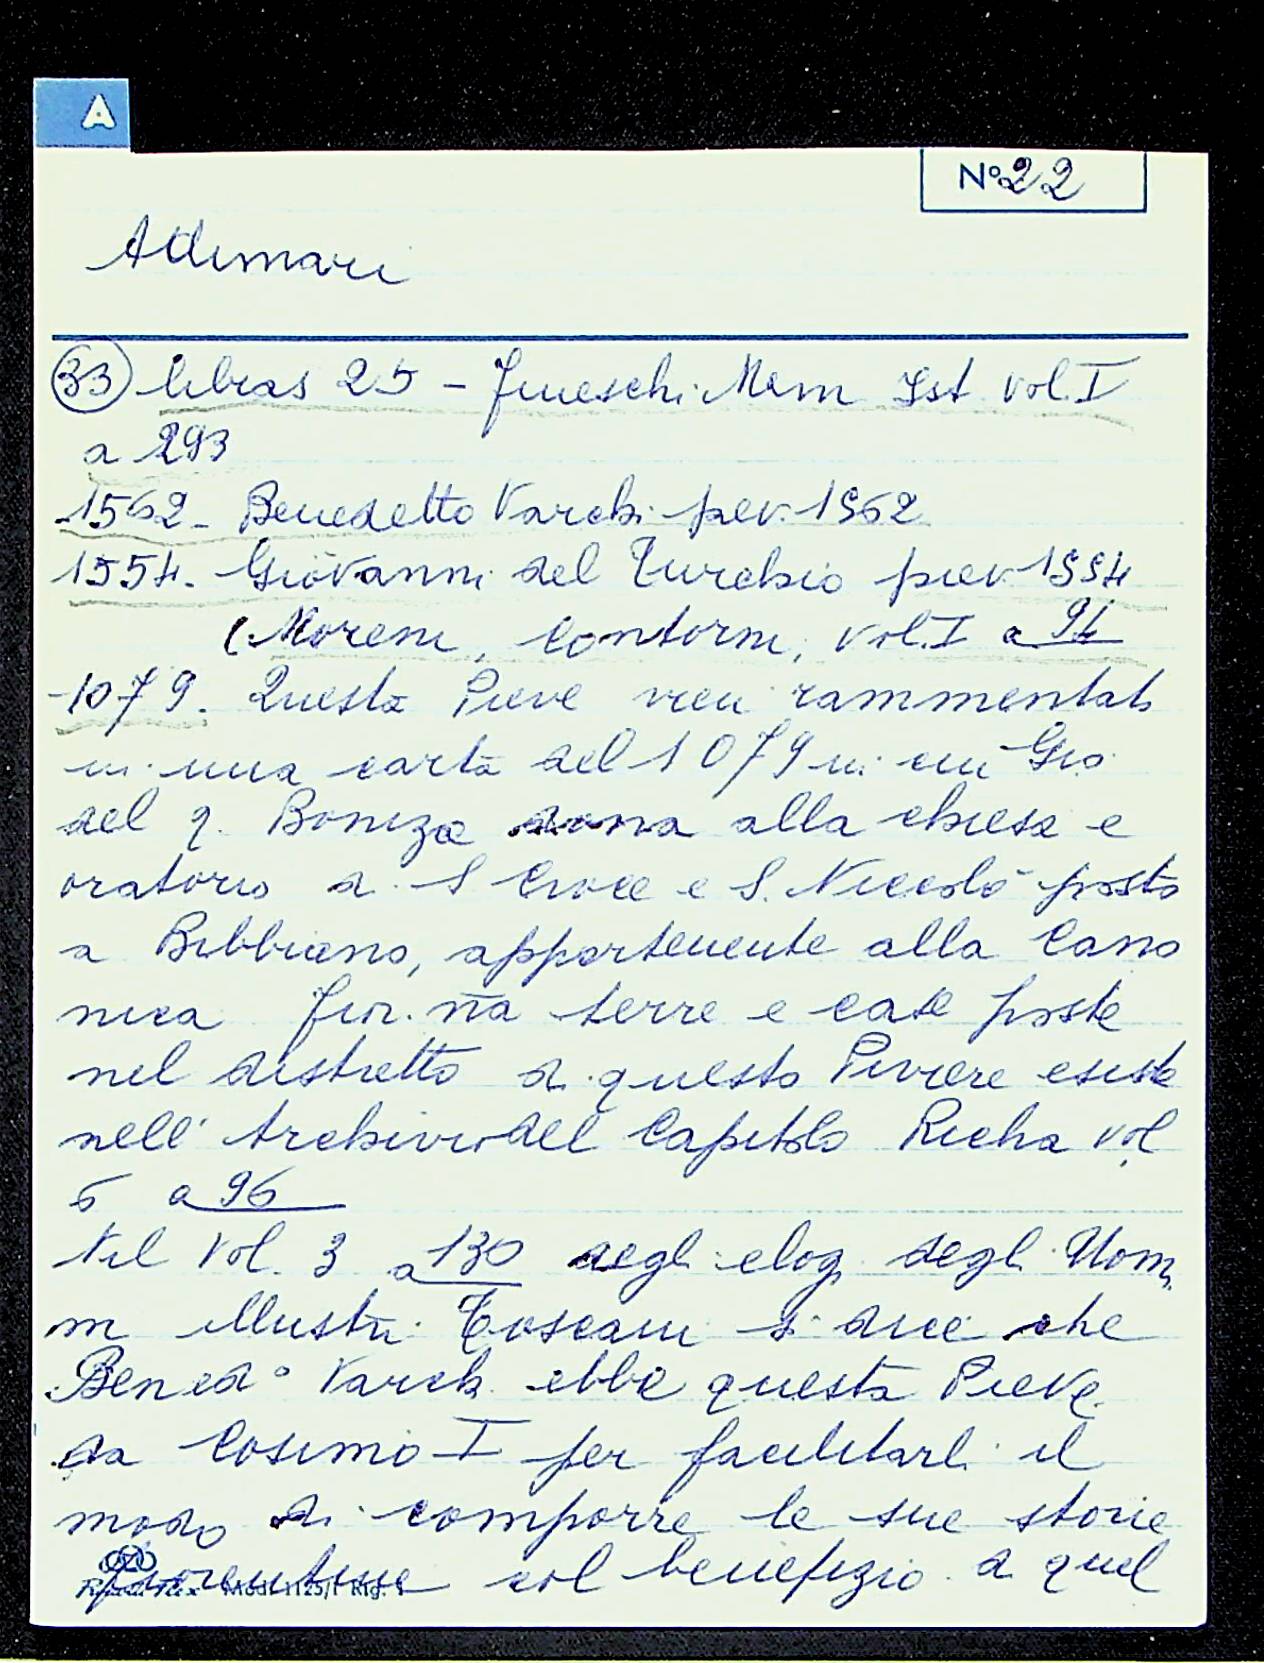 A
N° 22
Adimari
33 libras 25 - Fineschi Mem Ist vol. I
a 293
1562 - Benedetto Varchi piev. 1562
1554. Giovanni del Turchio piev 1554
(Moreni, Contorni, vol. I a 91
1079. Questa Pieve vien rammentata
in una carta del 1079 in cui Gio
del q. Bonizo dona alla chiesa e
oratorio di S Croce e S. Niccolò posto
a Bibbiano, appartenente alla Cano
nica fior.na terre e case poste
nel distretto di questo Piviere esiste
nell'Archivio del Capitolo Richa vol
6 a 96
Nel vol. 3 a 130 degli elog. degli Uom
in illustri Toscani si dice che
Bened° Varchi ebbe questa Pieve
da Cosimo I per facilitarli il
modo di comporre le sue storie
fiorentine col benefizio di quel